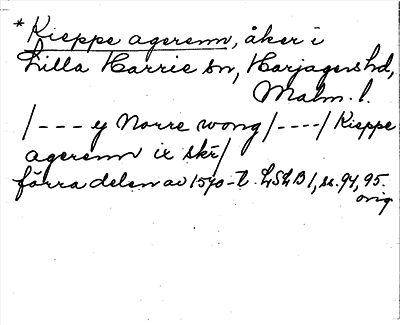 * Kieppe agerenn, åker i
Lilla Harrie sn, Harjagers hd,
Malm. l.
/ - - - y Norre wong / - - - - / Kieppe
agerenn ix skr /
förra delen av 1570-t. LSLB 1, ss. 94, 95.
orig